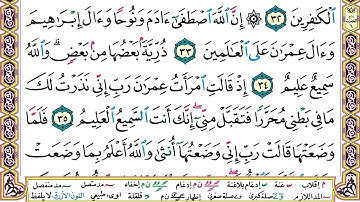 ٱلۡكَٰفِرِينَ ٣٢ ۞ إِنَّ ٱللَّهَ ٱصۡطَفَىٰٓ ءَادَمَ وَنُوحٗا وَءَالَ إِبۡرَٰهِيمَ
وَءَالَ عِمۡرَٰنَ عَلَى ٱلۡعَٰلَمِينَ ٣٣ ذُرِّيَّةَۢ بَعۡضُهَا مِنۢ بَعۡضٖۗ وَٱللَّهُ
سَمِيعٌ عَلِيمٌ ٣٤ إِذۡ قَالَتِ ٱمۡرَأَتُ عِمۡرَٰنَ رَبِّ إِنِّي نَذَرۡتُ لَكَ
مَا فِي بَطۡنِي مُحَرَّرٗا فَتَقَبَّلۡ مِنِّيٓۖ إِنَّكَ أَنتَ ٱلسَّمِيعُ ٱلۡعَلِيمُ ٣٥ فَلَمَّا
وَضَعَتۡهَا قَالَتۡ رَبِّ إِنِّي وَضَعۡتُهَآ أُنثَىٰ وَٱللَّهُ أَعۡلَمُ بِمَا وَضَعَتۡ